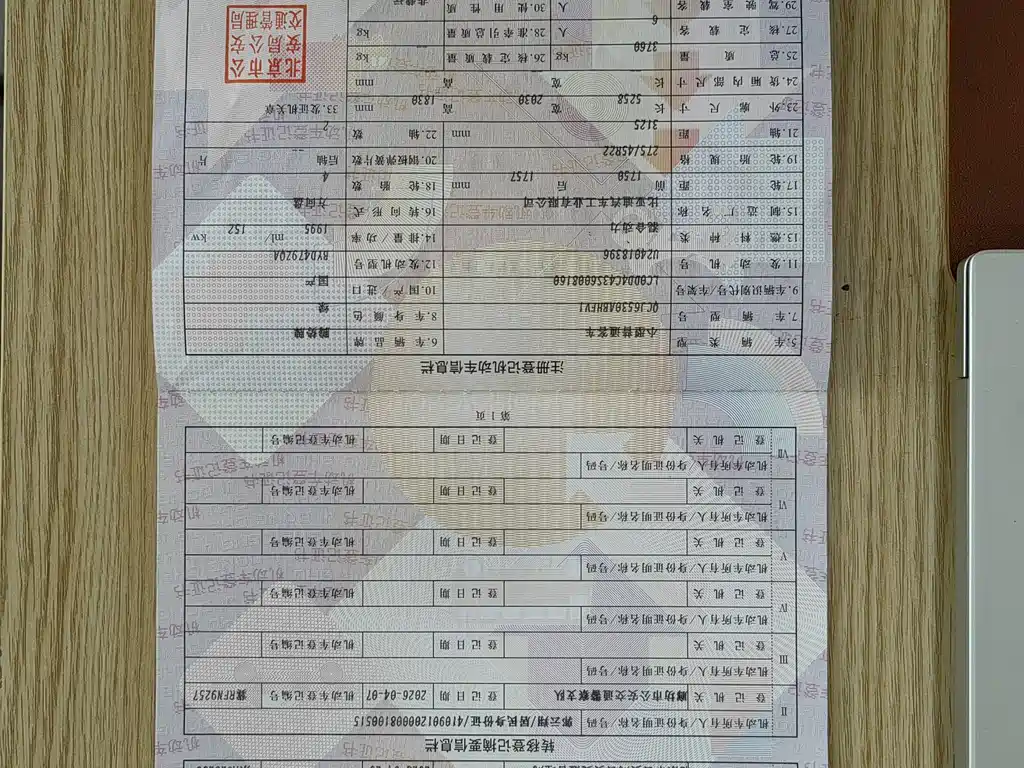 转移登记摘要信息栏
II 机动车所有人/身份证明名称/号码 郭云翔/居民身份证/410901200008100515
登记机关 廊坊市公安交通警察支队 登记日期 2026-04-07 机动车登记编号 冀RFN9257
III 机动车所有人/身份证明名称/号码
登记机关 登记日期 机动车登记编号
IV 机动车所有人/身份证明名称/号码
登记机关 登记日期 机动车登记编号
V 机动车所有人/身份证明名称/号码
登记机关 登记日期 机动车登记编号
VI 机动车所有人/身份证明名称/号码
登记机关 登记日期 机动车登记编号
VII 机动车所有人/身份证明名称/号码
登记机关 登记日期 机动车登记编号
第 1 页
注册登记机动车信息栏
5.车辆类型 小型普通客车 6.车辆品牌 腾势牌
7.车辆型号 QCJ6530ABHEV1 8.车身颜色 绿
9.车辆识别代号/车架号 LC0DD4C43S6008160 10.国产/进口 国产
11.发动机号 U24018396 12.发动机型号 BYD479ZQA
13.燃料种类 混合动力 14.排量/功率 1995 ml/ 152 kw
15.制造厂名称 比亚迪汽车工业有限公司 16.转向形式 方向盘
17.轮距 前 1750 后 1757 mm 18.轮胎数 4
19.轮胎规格 275/45R22 20.钢板弹簧片数 后轴 -- 片
21.轴距 3125 mm 22.轴数 2
23.外廓尺寸 长 5258 宽 2030 高 1830 mm 33.发证机关章
24.货厢内部尺寸 长 宽 高 mm
25.总质量 3760 kg 26.核定载质量 kg
27.核定载客 6 人 28.准牵引总质量 kg
29.驾驶室载客 人 30.使用性质
北京市公安局公安交通管理局